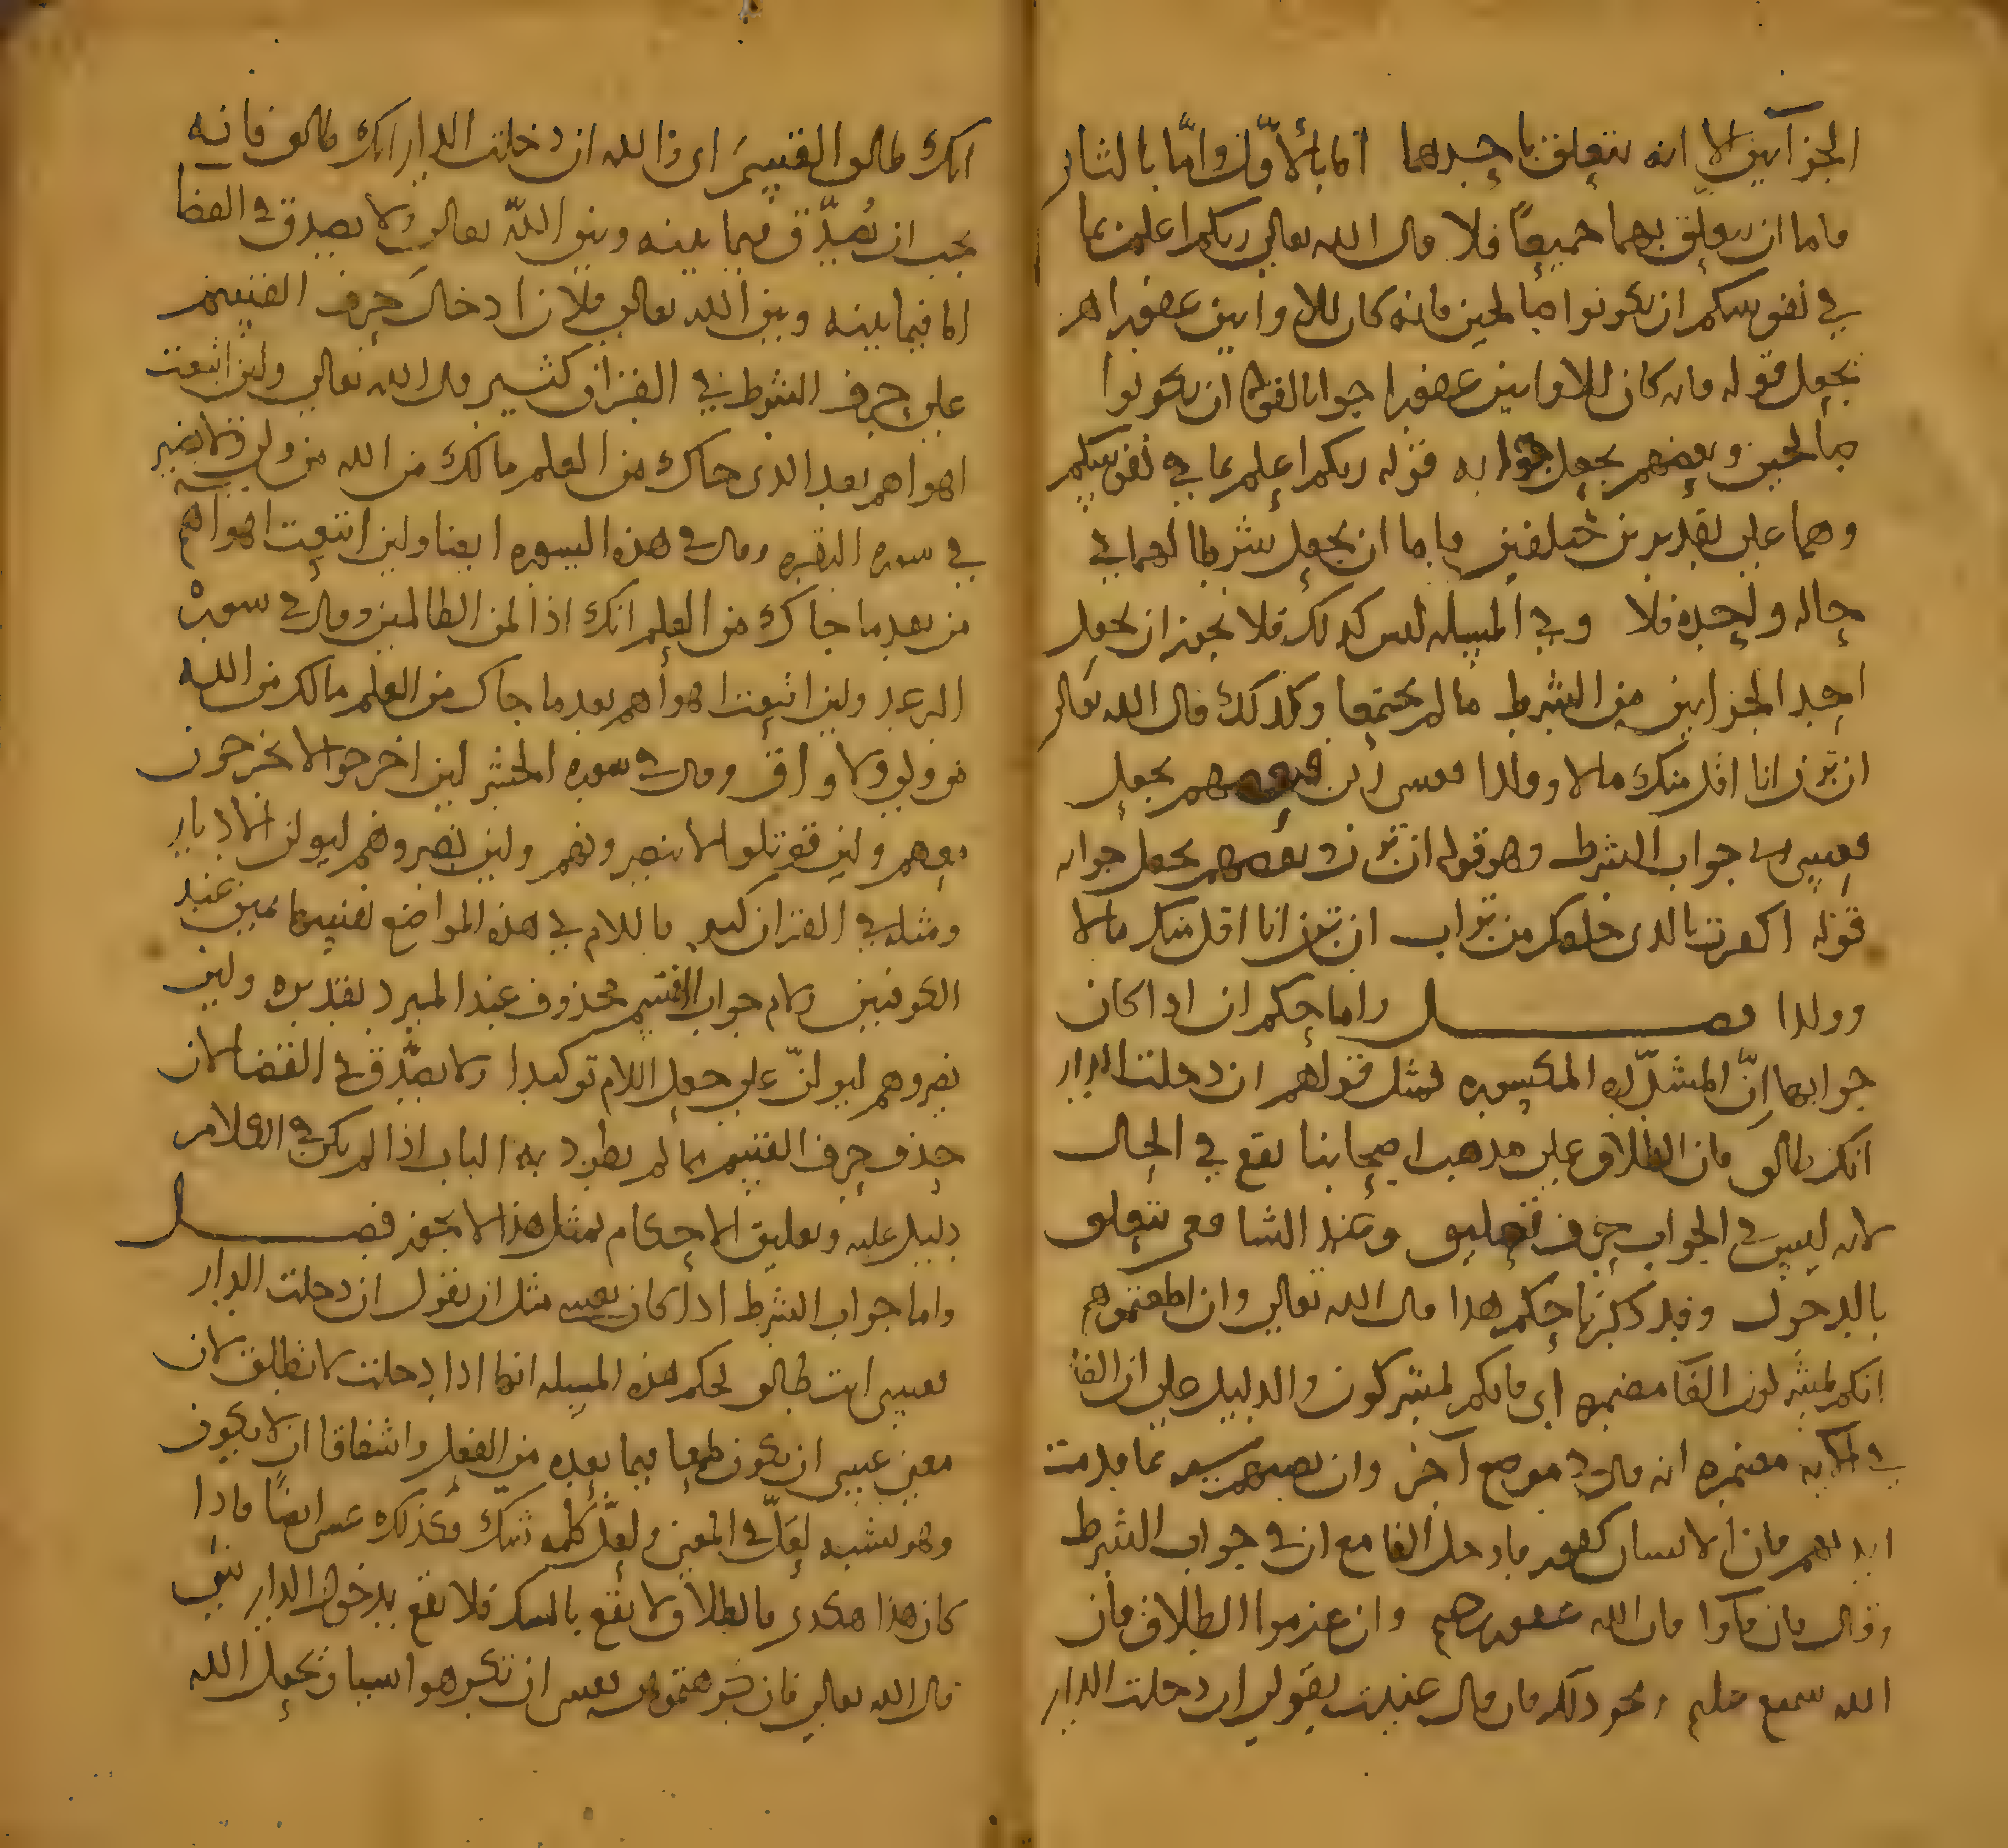 الجزآين الا انه يتعلق باحدهما اما بالاوّل وامّا بالثاني
فاما ان يتعلق بهما جميعًا فلا قال الله تعالى ربكم اعلم بما
في نفوسكم ان تكونوا صالحين فانه كان للاوابين غفورا هم
يجعل قوله فانه كان للاوابين غفورا جوابا لقوله ان تكونوا
صالحين وبعضهم يجعل جوابه قوله ربكم اعلم بما في نفوسكم
وهما على تقديرين مختلفين فاما ان يجعل شرطا لهما في
حاله واحده فلا وفي المسله ليس كذلك فلا يجوز ان يجعل
احد الجزاين من الشرط ما لم يجتمعا وكذلك قال الله تعالى
ان ترن انا اقل منك مالا وولدا فعسى ربي فبعضهم يجعل
فعسى ربي جواب الشرط وهو قوله ان ترن وبعضهم يجعل جوابه
قوله اكفرت بالذي خلقك من تراب ان ترن انا اقل منك مالا
وولدا فصل واما حكم ان اذا كان
جوابها انّ المشدّده المكسوره فمثل قولهم ان دخلت الدار
انك طالق فان الطلاق على مذهب اصحابنا يقع في الحال
لانه ليس في الجواب حرف تعليق وعند الشافعي يتعلق
بالدخول وقد ذكرنا حكم هذا قال الله تعالى وان اطعتموهم
انكم لمشركون الفا مضمره اي فانكم لمشركون والدليل على ان الفا
في الكلام مضمره انه قال في موضع آخر وان تصبهم سيئه بما قدمت
ايديهم فان الانسان كفور فادخل الفا مع ان في جواب الشرط
وقال فان فاوا فان الله غفور رحيم وان عزموا الطلاق فان
الله سميع عليم ونحو ذلك فان قال عنيت بقولي ان دخلت الدار
انك طالق القسم اي والله ان دخلت الدار انك طالق فانه
يجب ان يُصدّق فيما بينه وبين الله تعالى ولا يصدق في القضا
اما فيما بينه وبين الله تعالى فلان ادخال حرف القسم
على حرف الشرط في القران كثير قال الله تعالى ولين اتبعت
اهواهم بعد الذي جاك من العلم مالك من الله من ولي ولا نصير
في سوره البقره وقال في هذه السوره ايضا ولين اتبعت اهواهم
من بعد ما جاك من العلم انك اذا لمن الظالمين وقال في سوره
الرعد ولين اتبعت اهواهم بعد ما جاك من العلم مالك من الله
من ولي ولا واق وقال في سوره الحشر لين اخرجوا لا يخرجون
معهم ولين قوتلوا لا ينصرونهم ولين نصروهم ليولن الادبار
ومثله في القران كثير فاللام في هذه المواضع نفسها يمين عند
الكوفيين ولام جواب القسم محذوف عند المبرد تقديره ولين
نصروهم ليولنّ على جعل اللام توكيدا ولا يصدّق في القضا لان
حذف حرف القسم مما لم يطرد به الباب اذا لم يكن في الكلام
دليل عليه وتعليق الاحكام بمثل هذا لا يجوز فصل
واما جواب الشرط اذا كان بعسى مثل ان يقول ان دخلت الدار
فعسى انت طالق فحكم هذه المسيله انها اذا دخلت لا تطلق لان
معنى عسى ان يكون طمعا فيما بعده من الفعل واشفاقا ان لا يكون
وهو يشبه لعلّ في المعنى ولعلّ كلمه شك فكذلك عسى ايضًا فاذا
كان هذا هكذى فالطلاق لا يقع بالشك فلا يقع بدخول الدار شي
قال الله تعالى فان كرهتموهن فعسى ان تكرهوا شيا ويجعل الله